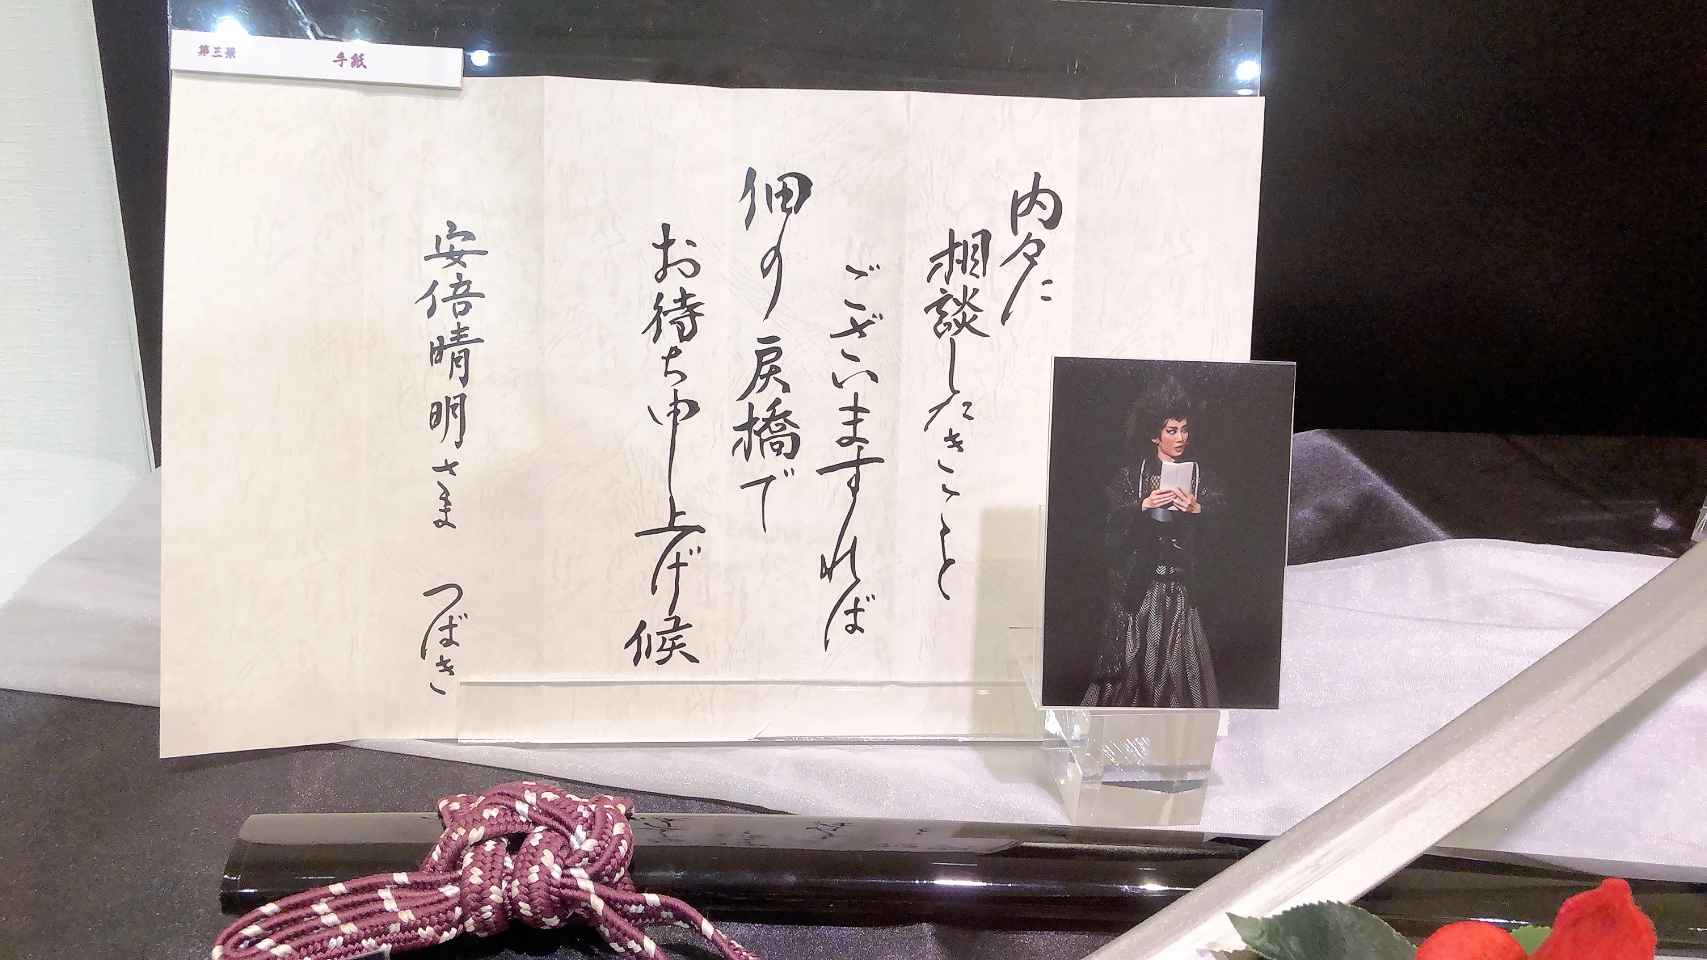 第三景 手紙
内々に
相談したきこと
ございますれば
佃の戻橋で
お待ち申し上げ候
安倍晴明さま つばき